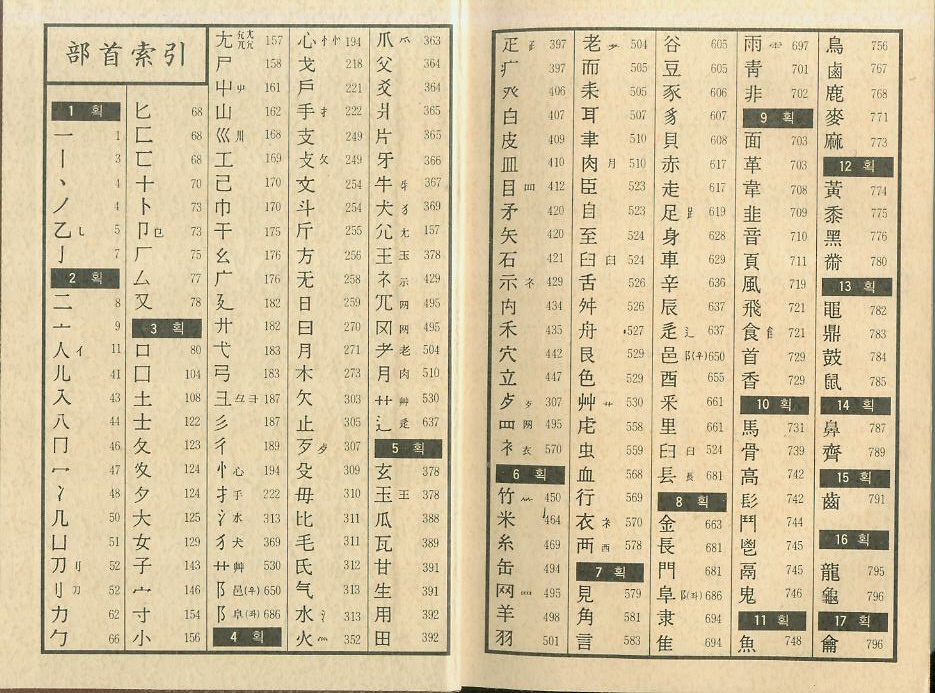 部首索引
1 획
一 1
丨 3
丶 4
丿 4
乙 乚 5
亅 7
2 획
二 8
亠 9
人 亻 11
儿 41
入 43
八 44
冂 46
冖 47
冫 48
几 50
凵 51
刀 刂 52
刂 刀 52
力 62
勹 66
匕 68
匚 68
匸 68
十 70
卜 73
卩 㔾 73
厂 75
厶 77
又 78
3 획
口 80
囗 104
土 108
士 122
夂 123
夊 124
夕 124
大 125
女 129
子 143
宀 146
寸 154
小 156
尢 157
尸 158
屮 161
山 162
巛 川 168
工 169
己 170
巾 170
干 175
幺 176
广 176
廴 182
廾 182
弋 183
弓 183
彐 彑 ヨ 187
彡 187
彳 189
忄 心 194
扌 手 222
氵 水 313
犭 犬 369
艹 艸 530
阝 邑(우) 650
阝 阜(좌) 686
4 획
心 忄 㣺 194
戈 218
戶 221
手 扌 222
支 249
攴 攵 249
文 254
斗 254
斤 255
方 256
无 258
日 259
曰 270
月 271
木 273
欠 303
止 305
歹 歺 307
殳 309
毋 310
比 311
毛 311
氏 312
气 313
水 氵 313
火 灬 352
爪 爫 363
父 364
爻 364
爿 365
片 365
牙 366
牛 牜 367
犬 犭 369
尣 尢 157
王 玉 378
礻 示 429
网 495
网 495
耂 老 504
月 肉 510
艹 艸 530
辶 辵 637
5 획
玄 378
玉 王 378
瓜 388
瓦 389
甘 391
生 391
用 392
田 392
疋 397
疒 397
癶 406
白 407
皮 409
皿 410
目 罒 412
矛 420
矢 420
石 421
示 礻 429
禸 434
禾 435
穴 442
立 447
歺 歹 307
罒 网 495
衤 衣 570
6 획
竹 450
米 464
糸 469
缶 494
网 罒 495
羊 498
羽 501
老 耂 504
而 505
耒 505
耳 507
聿 510
肉 月 510
臣 523
自 523
至 524
臼 524
舌 526
舛 526
舟 527
艮 529
色 529
艸 艹 530
虍 558
虫 559
血 568
行 569
衣 衤 570
襾 西 578
7 획
見 579
角 581
言 583
谷 605
豆 605
豕 606
豸 607
貝 608
赤 617
走 617
足 619
身 628
車 629
辛 636
辰 637
辵 辶 637
邑 阝(우) 650
酉 655
釆 661
里 661
臼 524
镸 長 681
8 획
金 663
長 681
門 681
阜 阝(좌) 686
隶 694
隹 694
雨 697
靑 701
非 702
9 획
面 703
革 703
韋 708
韭 709
音 710
頁 711
風 719
飛 721
食 飠 721
首 729
香 729
10 획
馬 731
骨 739
高 742
髟 742
鬥 744
鬯 745
鬲 745
鬼 746
11 획
魚 748
鳥 756
鹵 767
鹿 768
麥 771
麻 773
12 획
黃 774
黍 775
黑 776
黹 780
13 획
黽 782
鼎 783
鼓 784
鼠 785
14 획
鼻 787
齊 789
15 획
齒 791
16 획
龍 795
龜 796
17 획
龠 796